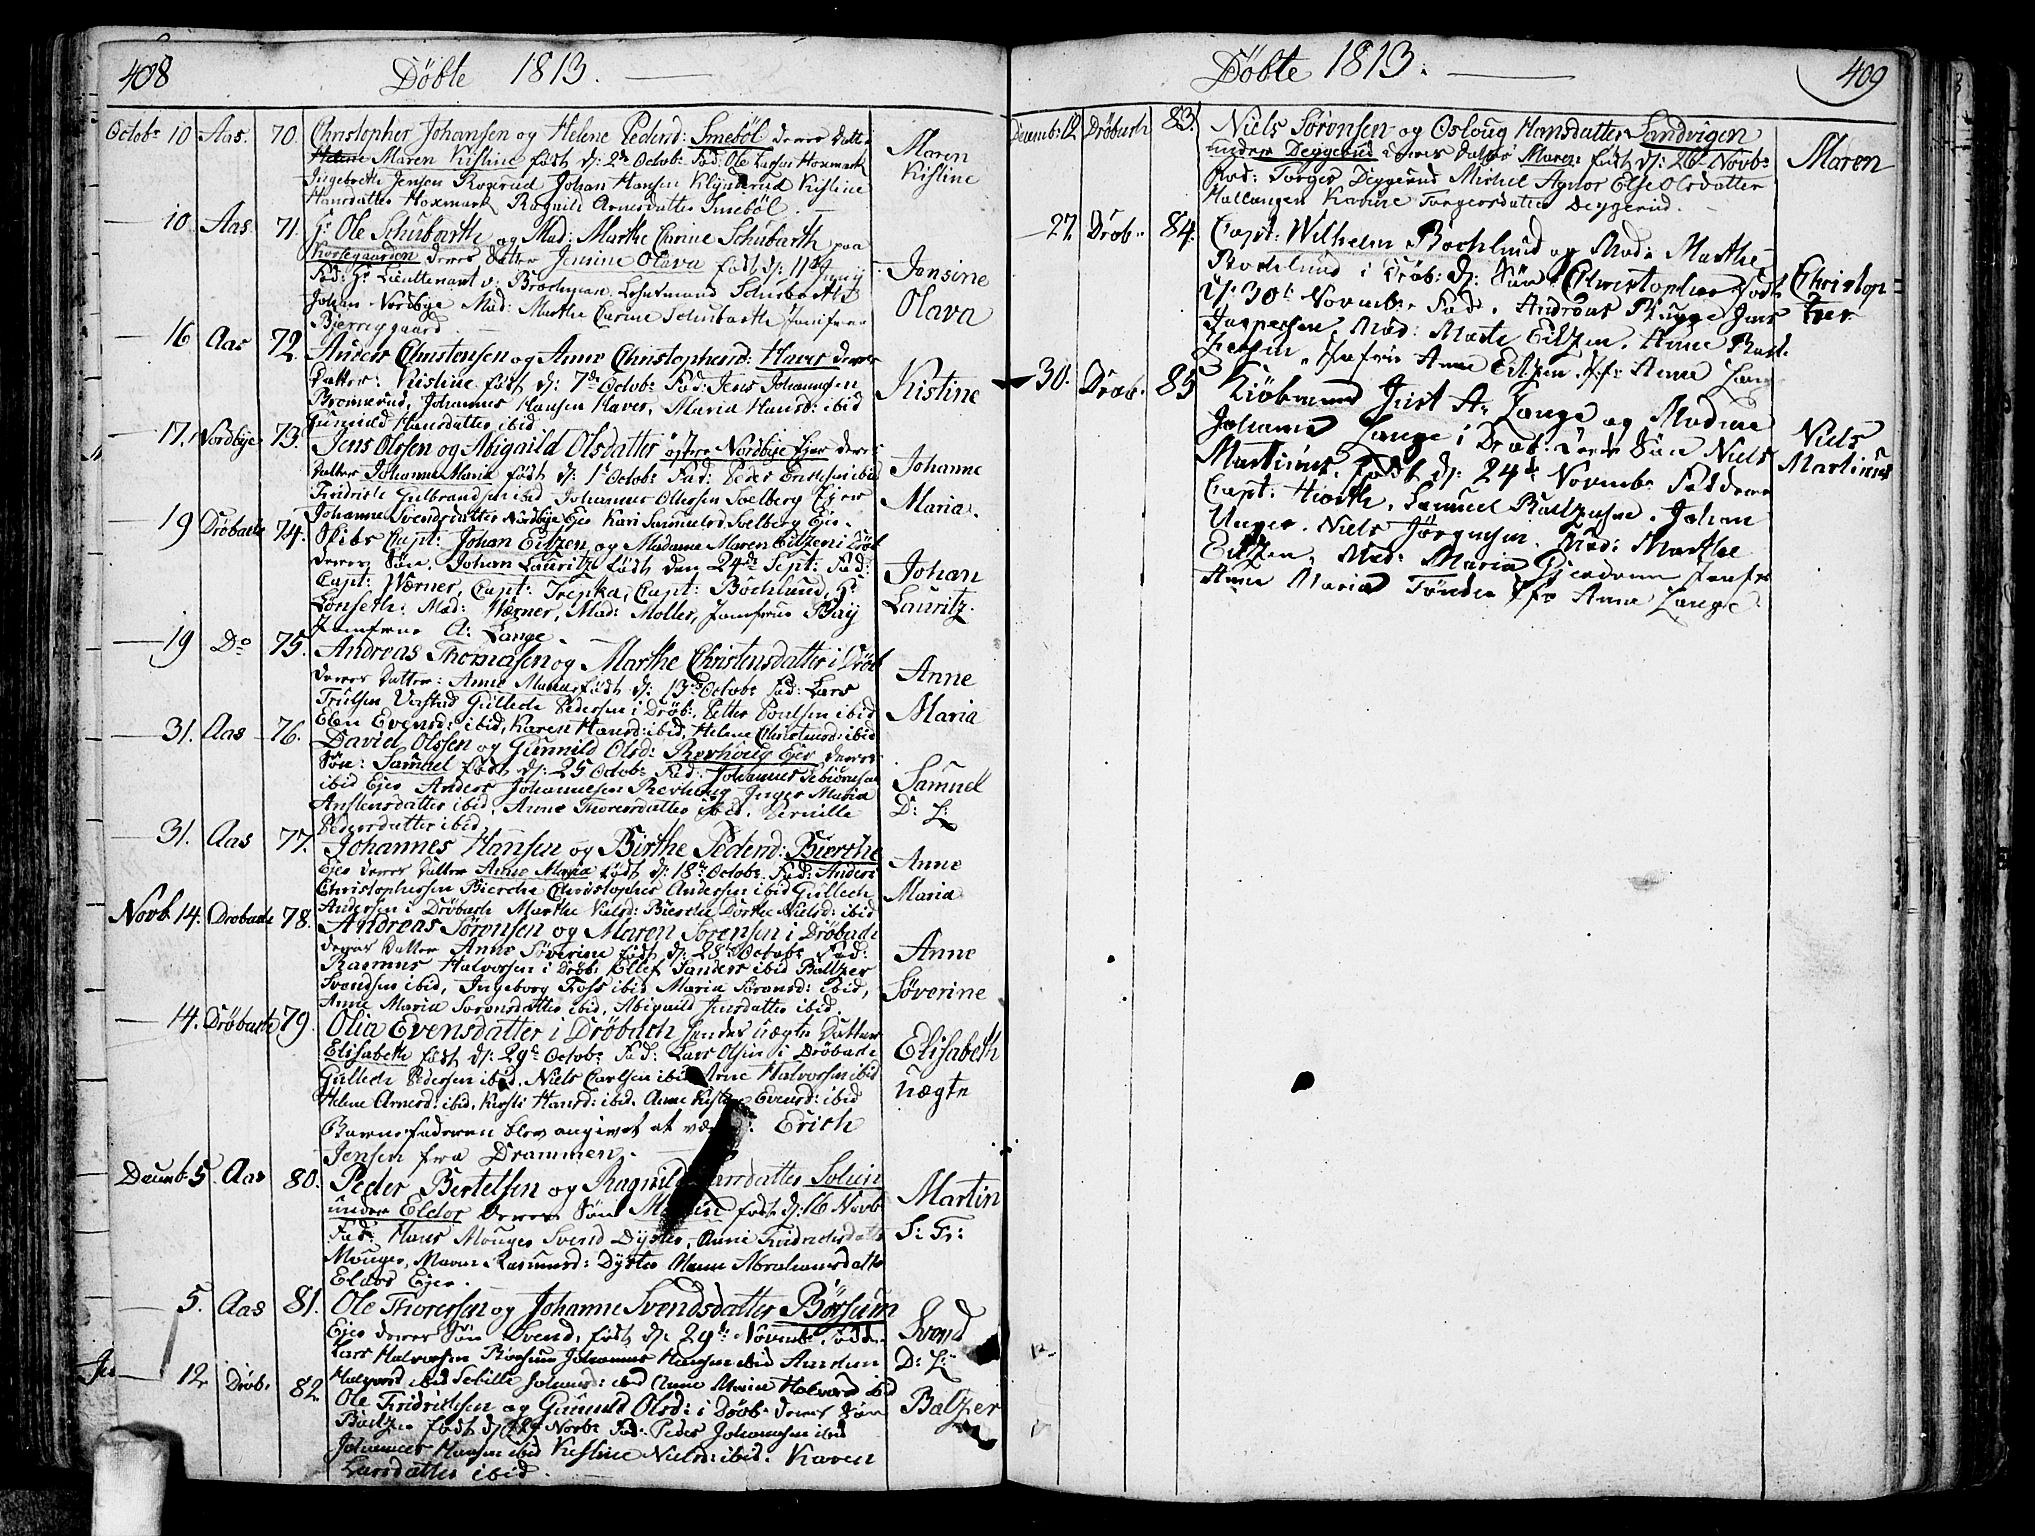 408
Döbte 1813.
Octobr 10 Aas. 70. Christopher Johansen og Helene Pedersd: Smeböl deres Datter
Maren Kistine födt d: 2de Octobr Fad: Ole Larsen Hoxmark
Maren
Kistine
Ingebreth Jensen Rogerud Johan Hansen Klynderud Kistine
Hansdatter Hoxmark Ragnild Arnesdatter Smeböl.
10 Aas 71. Hr Ole Schubarth og Mad: Marthe Carine Schubarth paa
Korsegaarden deres Datter Jensine Olava födt d: 11te Juny
Jensine
Olava
Fad: Hr Lieutenant v: Brochman, Schubarth
Johan Nordbye Mad: Marthe Carine Schubarth Jomfrue
Bjerregaard
16 Aas 72. Anders Christensen og Anne Christophersd: Haver deres
Datter: Kistine födt d: 7de Octobr Fad: Jens Johannesen
Kistine
Brönnerud, Johannes Hansen Haver, Maria Hansd: ibid
Gunnild Hansdatter ibid
17. Nordbye 73. Jens Olssen og Abigaild Olsdatter östre Nordbye Ejer deres
Datter Johanne Maria födt d: 1te Octobr Fad: Peder Erichsen ibid
Johanne
Maria.
Fridrich Gulbrandsen ibid Johannes Ollesen Solberg Ejer
Johanne Svendsdatter Nordbye Ejer Kari Samuelsd Solberg Eje.
19 Dröbach 74. Skibs Capt: Johan Eilzen og Madame Maren Eilzen i Dröb
deres Sön. Johan Lauritz födt den 24de Sept: Fad:
Johan
Lauritz.
Capt: Wærner, Capt: Trepka, Capt: Bochlund, Hr
Lonseth: Mad: Wærner, Mad: Moller, Jomfrue Bay
Jomfrue A: Lange.
19 Do 75. Andreas Thomasen og Marthe Christensdatter i Dröb
deres Datter: Anne Maria födt d: 13de Octobr Fad: Lars
Anne
Maria
Trulsen Gullech Pedersen i Dröb: Petter Poulsen ibid
Elen Evensd: ibid, Karen Hansd: ibid, Helene Christensd: ibid
31. Aas 76. David Olssen og Gunnild Olsd: Rerhoug Eje deres
Sön: Samuel födt d: 25 Octobr Fad: Johannes
Samuel
D: L:
ibid Eje Anders Johannesen Rerhoug Inger Maria
datter ibid. Anne Thoresdatter ibid. Pernille
Pedersdatter ibid.
31. Aas 77. Johannes Hansen og Birthe Pedersd: Bierche
Eje deres Datter Anne Maria födt d: 18de Octobr Fad: Anders
Anne
Maria
Christophersen Bierche Christopher Andersen ibid Gullech
Andersen i Dröbach Marthe Nielsd: Bierche Dorthe Nielsd: ibid
Novb 14. Dröbach 78. Andreas Sörensen og Maren Sörensen i Dröbach
deres Datter Anne Söverine födt d: 28de Octobr Fad:
Anne
Söverine
Rasmus Halvorsen i Dröb: Ellef Sanders ibid Baltzer
Svendsen ibid, Ingeborg Foss ibid Maria Sörensd: ibid,
Anne Maria Sörensdatter ibid, Abigaild Jensdatter ibid.
14. Dröbach 79. Olia Evensdatter i Dröbach hendes uægte Datter
Elisabeth födt d: 29de Octobr Fad: Lars Olsen i Dröbach
Elisabeth
uægte
Gullech Pedersen ibid. Niels Carlsen ibid Arne Halvorsen ibid
Helene Arnesd: ibid, Kirsti Hansd: ibid. Anne Evensd: ibid
Barnefaderen blev angivet at være: Erich
Jensen fra Drammen.
Decemb: 5 Aas 80. Peder Bertelsen og Ragnild Larsdatter Solein
under Eldor deres Sön Martin födt d: 16 Novb
Martin
S: Fr:
Fad: Hans Mouger Svend Dyster, Anne Fridrichsdatter
Mouger, Maren Rasmusd: Dyster Abrahamsdatter
Eldors Ejer.
5. Aas 81. Ole Thoresen og Johanne Svendsdatter Börsum
Eje deres Sön Svend, födt d: 29de Novemb: Fadd:
Svend
D: L:
Lars Halvorsen Börsum Johannes Hansen ibid
Halvorsd ibid ibid Anne Maria Halvorsd ibid
12. Dröb. 82. Ole Fridrichsen og Gunnild Olsd: i Dröb deres Sön
Baltzer födt d: 29 Novbr Fad: Peder Johannesen ibid
Baltzer
Johannes Hansen ibid Kistine Nielsd: ibid. Karen
Larsdatter ibid.
Döbte 1813.
409
Decemb: 12. Dröbach 83. Niels Sörensen og Osloug Hansdatter Sandvigen
under Deggerud deres Datter Maren födt d: 26 Novbr
Maren
Fad: Torger Deggerud Michel Agnor Else Olsdatter
Hallangen Karine Torgersdatter Deggerud.
27. Dröb. 84. Capt: Wilhelm Bochlund og Mad: Marthe
Bochlund i Dröb: d: Sön Christopher födt
Christop=
her
d: 30te Novemb: Fad: Andreas Bugge Jens
Jespersen, Mad: Marte Eilzen, Anne
Jomfrue Anne Eilzen Jfr: Anne Lange
30. Dröb. 85 Kiöbmand Just A: Lange og Madme
Johanne Lange i Dröb. deres Sön Niels
Niels
Martinus
Martinus födt d: 24de Novemb: Faddere
Capt: Hiorth, Samuel Baltzersen. Johan
Unger. Niels Jörgensen. Mad: Marthe
Eilzen, Mad: Maria Jomfr:
Anne Maria Tönder Jfr Anne Lange